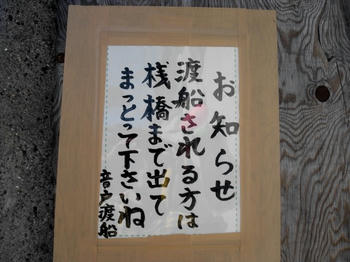 お知らせ
渡船される方は
桟橋まで出て
まっとって下さいね
音戸渡船